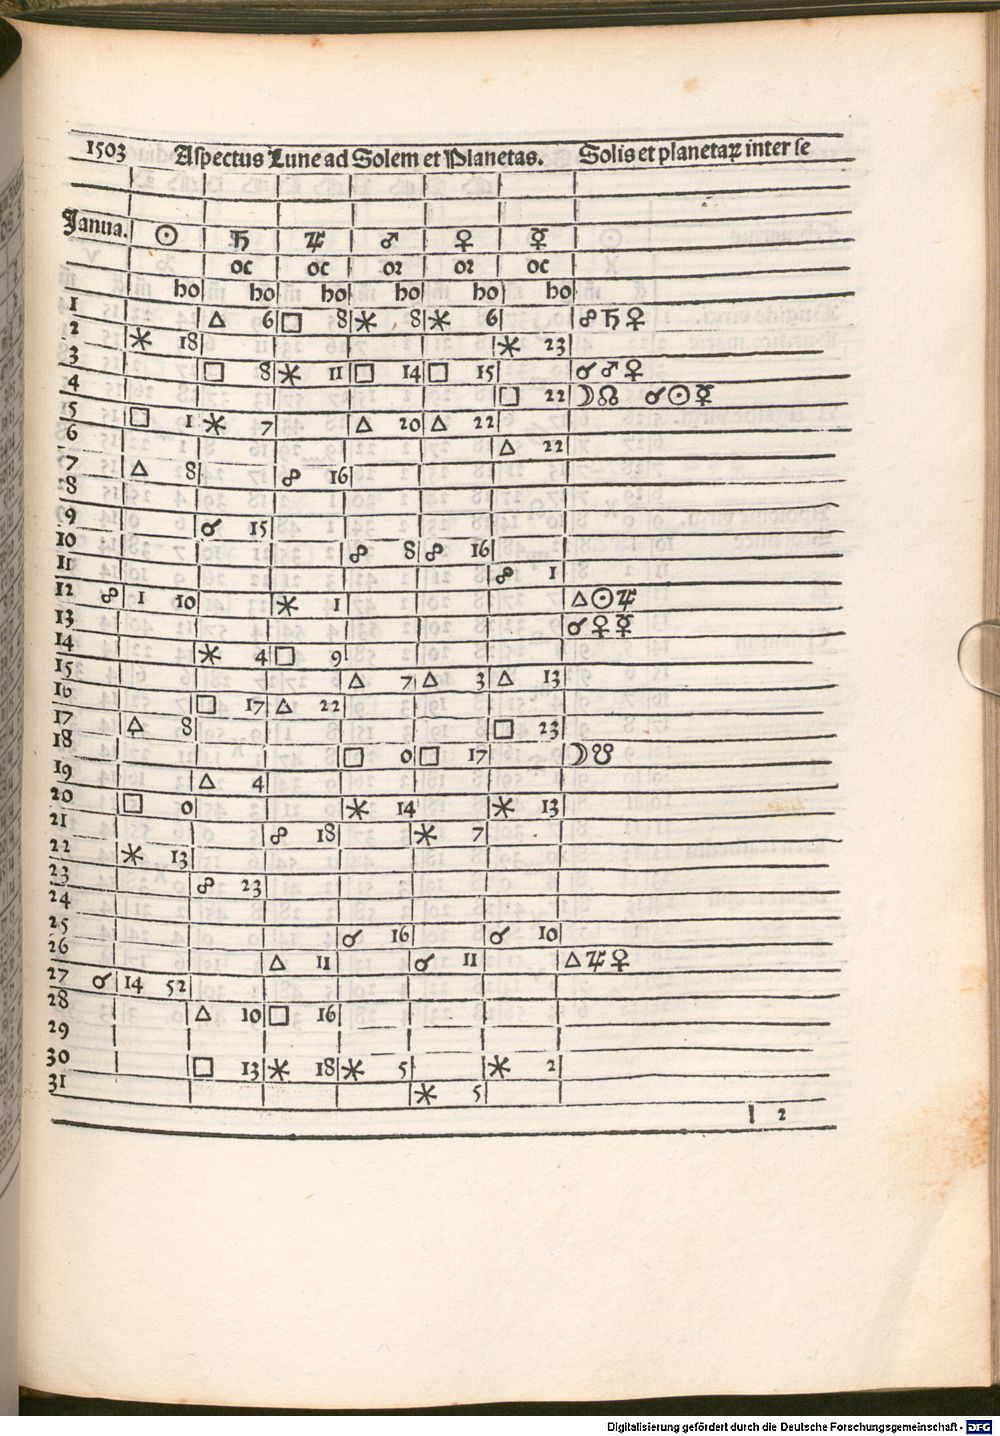 1503 Aspectus Lune ad Solem et Planetas. Solis et planetaꝝ inter se
Janua. ☉ ♄ ♃ ♂ ♀ ☿
oc oc oꝛ oꝛ oc
ho ho ho ho ho ho
1 △ 6 □ 8 ⚹ 8 ⚹ 6 ☍ ♄ ♀
2 ⚹ 18 ⚹ 23
3 □ 8 ⚹ 11 □ 14 □ 15 ☌ ♂ ♀
4 □ 22 ☽ ☊ ☌ ☉ ☿
15 □ 1 ⚹ 7 △ 20 △ 22
6 △ 22
7 △ 8 ☍ 16
8
9 ☌ 15
10 ☍ 8 ☍ 16
11 ☍ 1
12 ☍ 1 10 ⚹ 1 △ ☉ ♃
13 ☌ ♀ ☿
14 ⚹ 4 □ 9
15 △ 7 △ 3 △ 13
16 □ 17 △ 22
17 △ 8 □ 23
18 □ 0 □ 17 ☽ ☋
19 △ 4
20 □ 0 ⚹ 14 ⚹ 13
21 ☍ 18 ⚹ 7
22 ⚹ 13
23 ☍ 23
24
25 ☌ 16 ☌ 10
26 △ 11 ☌ 11 △ ♃ ♀
27 ☌ 14 52
28 △ 10 □ 16
29
30 □ 13 ⚹ 18 ⚹ 5 ⚹ 2
31 ⚹ 5
l 2
Digitalisierung gefördert durch die Deutsche Forschungsgemeinschaft - DFG